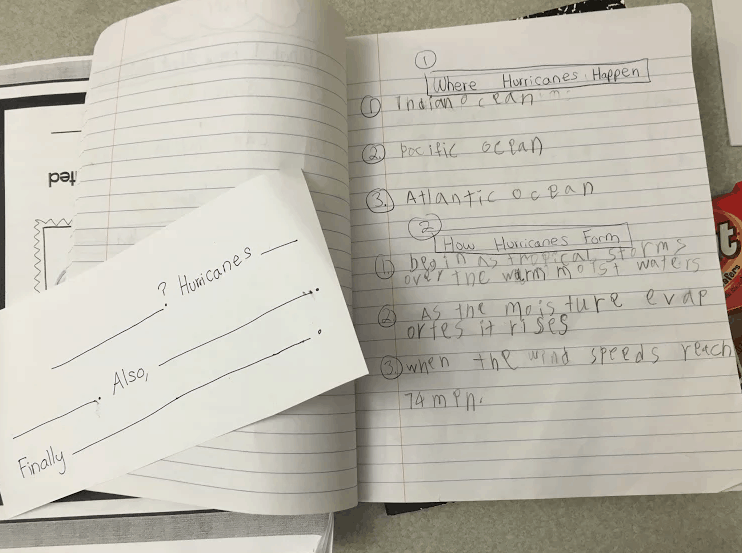 ①
Where Hurricanes Happen
① Indian Ocean
②. Pocific ocean
③. Atlantic ocean
②
How Hurricanes Form
①. begin as tropical storms
over the warm moist waters
② As the moisture evap
ortes it rises
③. when the wind speeds reach
74 mph.
____? Hurricanes ____
____. Also, ____.
Finally ____.